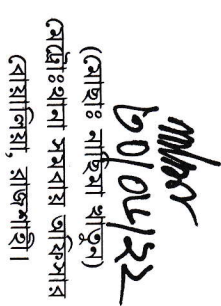 ৩০/০৮/২২
(মোছাঃ নাছিমা খাতুন)
মেট্রোঃ থানা সমবায় অফিসার
বোয়ালিয়া, রাজশাহী।